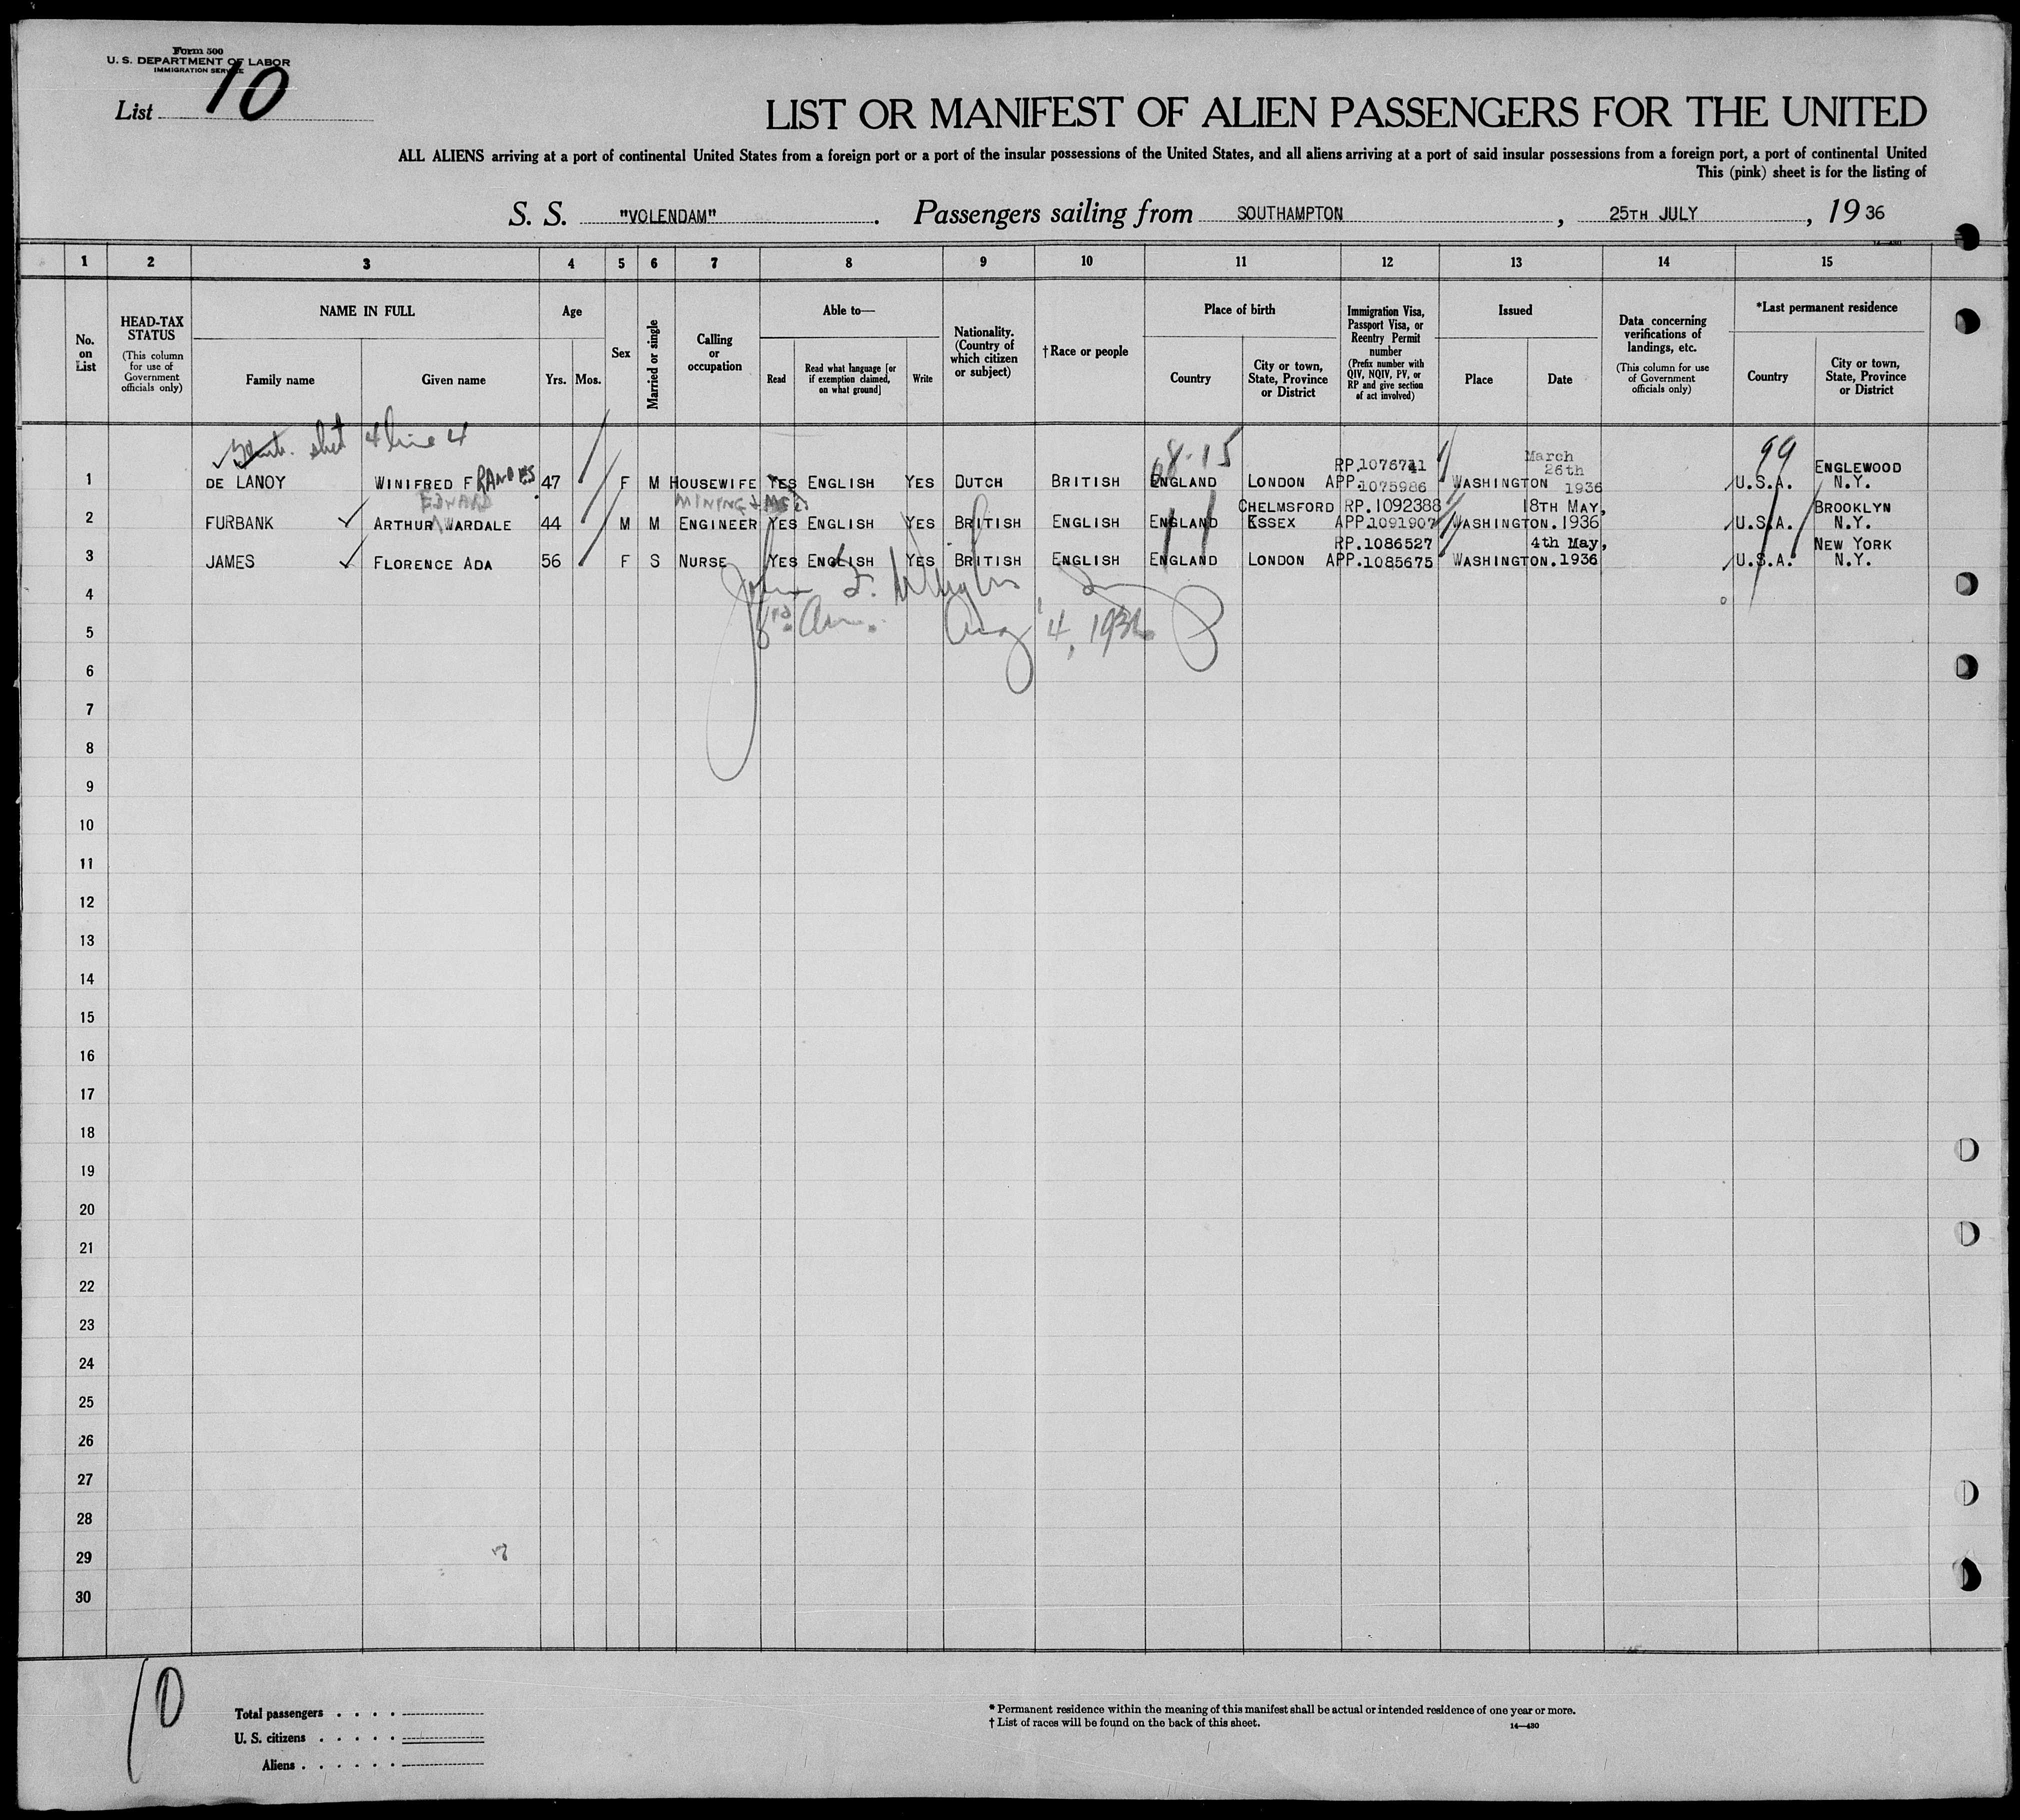 Form 500
U. S. DEPARTMENT OF LABOR
IMMIGRATION SERVICE
List 10
LIST OR MANIFEST OF ALIEN PASSENGERS FOR THE UNITED
ALL ALIENS arriving at a port of continental United States from a foreign port or a port of the insular possessions of the United States, and all aliens arriving at a port of said insular possessions from a foreign port, a port of continental United
This (pink) sheet is for the listing of
S. S. "VOLENDAM". Passengers sailing from SOUTHAMPTON, 25TH JULY, 19 36
1 2 3 4 5 6 7 8 9 10 11 12 13 14 15
No. on List
HEAD-TAX STATUS (This column for use of Government officials only)
NAME IN FULL Family name Given name
Age Yrs. Mos.
Sex
Married or single
Calling or occupation
Able to— Read Read what language [or if exemption claimed, on what ground] Write
Nationality. (Country of which citizen or subject)
†Race or people
Place of birth Country City or town, State, Province or District
Immigration Visa, Passport Visa, or Reentry Permit number (Prefix number with QIV, NQIV, PV, or RP and give section of act involved)
Issued Place Date
Data concerning verifications of landings, etc. (This column for use of Government officials only)
*Last permanent residence Country City or town, State, Province or District
sheet 4 line 4
8-15 99
RP.1076741 March 26th ENGLEWOOD
1 DE LANOY WINIFRED FRANCES 47 F M HOUSEWIFE YES ENGLISH YES DUTCH BRITISH ENGLAND LONDON APP.1075986 WASHINGTON 1936 U.S.A. N.Y.
EDWARD MINING CHELMSFORD RP.1092388 18TH MAY, BROOKLYN
2 FURBANK ARTHUR WARDALE 44 M M ENGINEER YES ENGLISH YES BRITISH ENGLISH ENGLAND ESSEX APP.1091907 WASHINGTON.1936 U.S.A. N.Y.
RP.1086527 4th May, NEW YORK
3 JAMES FLORENCE ADA 56 F S NURSE YES ENGLISH YES BRITISH ENGLISH ENGLAND LONDON APP.1085675 WASHINGTON.1936 U.S.A. N.Y.
4
Aug 4, 1936
5
6
7
8
9
10
11
12
13
14
15
16
17
18
19
20
21
22
23
24
25
26
27
28
29
30
10
Total passengers
U. S. citizens
Aliens
* Permanent residence within the meaning of this manifest shall be actual or intended residence of one year or more.
† List of races will be found on the back of this sheet.
14—430